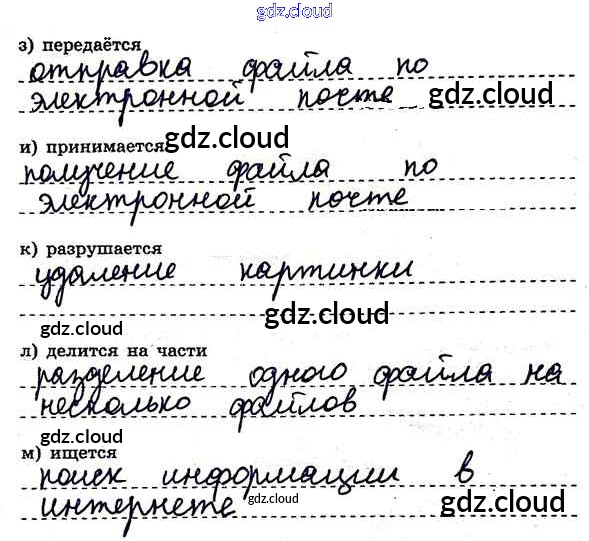 gdz.cloud
з) передаётся
отправка файла по
электронной почте gdz.cloud
и) принимается gdz.cloud
получение файла по
электронной почте
к) разрушается
удаление картинки
gdz.cloud gdz.cloud
л) делится на части
разделение одного файла на
несколько файлов
м) ищется
поиск информации в
интернете gdz.cloud gdz.cloud